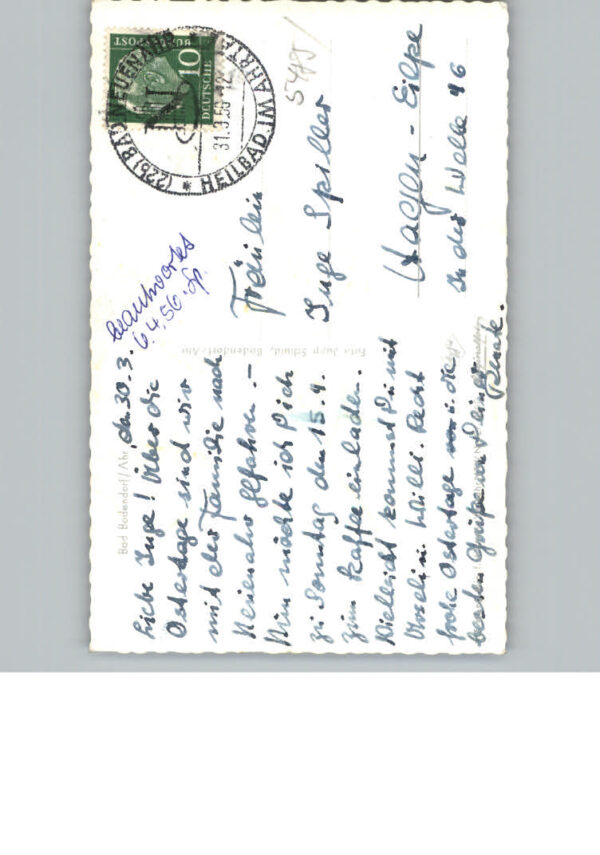 Bad Bodendorf/Ahr, den 30.3.
Liebe Inge! Über die
Ostertage sind wir
mit der Familie nach
Neuenahr gefahren. –
Nun möchte ich Dich
zu Sonntag den 15.4.
zum Kaffee einladen.
Vielleicht kommst Du mit
Ursel u. Willi. Recht
frohe Ostertage u. die
besten Grüße Deine
Renate.
beantwortet
6.4.56. Sp.
Foto Jupp Schmid, Bodendorf/Ahr
DEUTSCHE
BUNDESPOST
10
(22b) BAD NEUENAHR
31.3.56
* HEILBAD IM AHRTAL
5495/
Fräulein
Inge Spiller
Hagen - Eilpe
In der Welle 46